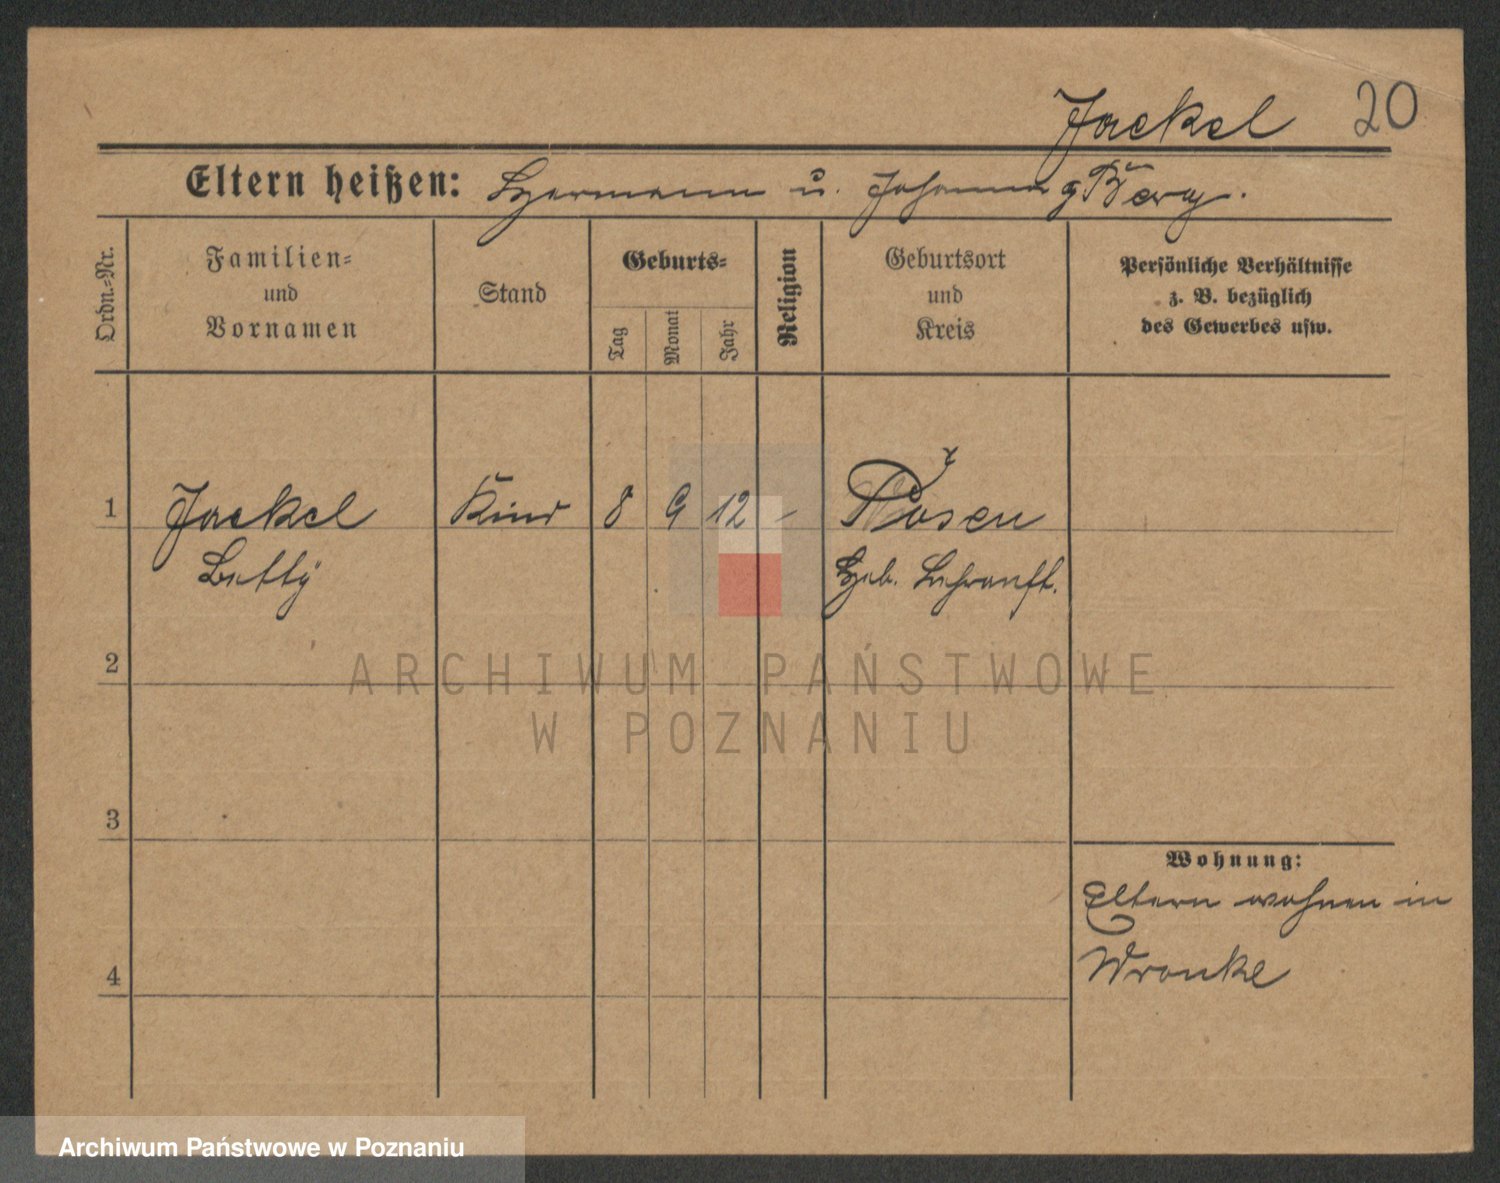 Jaekel 20
Eltern heißen: Hermann u. Johanna g. Berg.
Ordn.-Nr.
Familien-
und
Vornamen
Stand
Geburts-
Tag
Monat
Jahr
Religion
Geburtsort
und
Kreis
Persönliche Verhältnisse
z. B. bezüglich
des Gewerbes usw.
1 Jaekel Kind 8 9 12 - Posen
Betty Heb. Lehranst.
2
3
4
Wohnung:
Eltern wohnen in
Wronke
ARCHIWUM PAŃSTWOWE
W POZNANIU
Archiwum Państwowe w Poznaniu